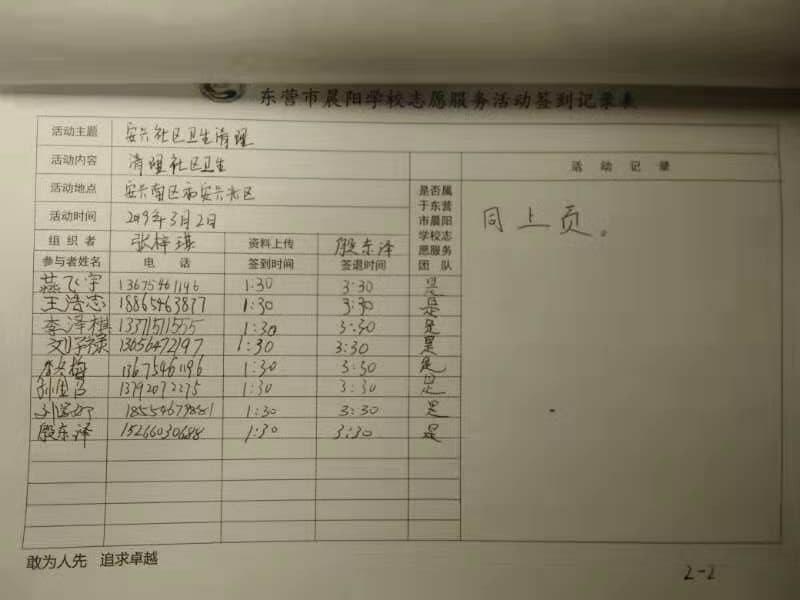 东营市晨阳学校志愿服务活动签到记录表
活动主题 安兴社区卫生清理
活动内容 清理社区卫生
活动地点 安兴南区和安兴北区
活动时间 2019年3月2日
组织者 张梓琪 资料上传 殷东泽
参与者姓名 电话 签到时间 签退时间
是否属于东营市晨阳学校志愿服务团队
活动记录
同上页。
燕飞宇 13675461146 1:30 3:30 是
王浩志 18865463877 1:30 3:30 是
李泽棋 13371571555 1:30 3:30 是
刘子禄 13056472197 1:30 3:30 是
13675461196 1:30 3:30 是
13792072275 1:30 3:30 是
18554679881 1:30 3:30 是
殷东泽 15266030688 1:30 3:30 是
敢为人先 追求卓越
2-2